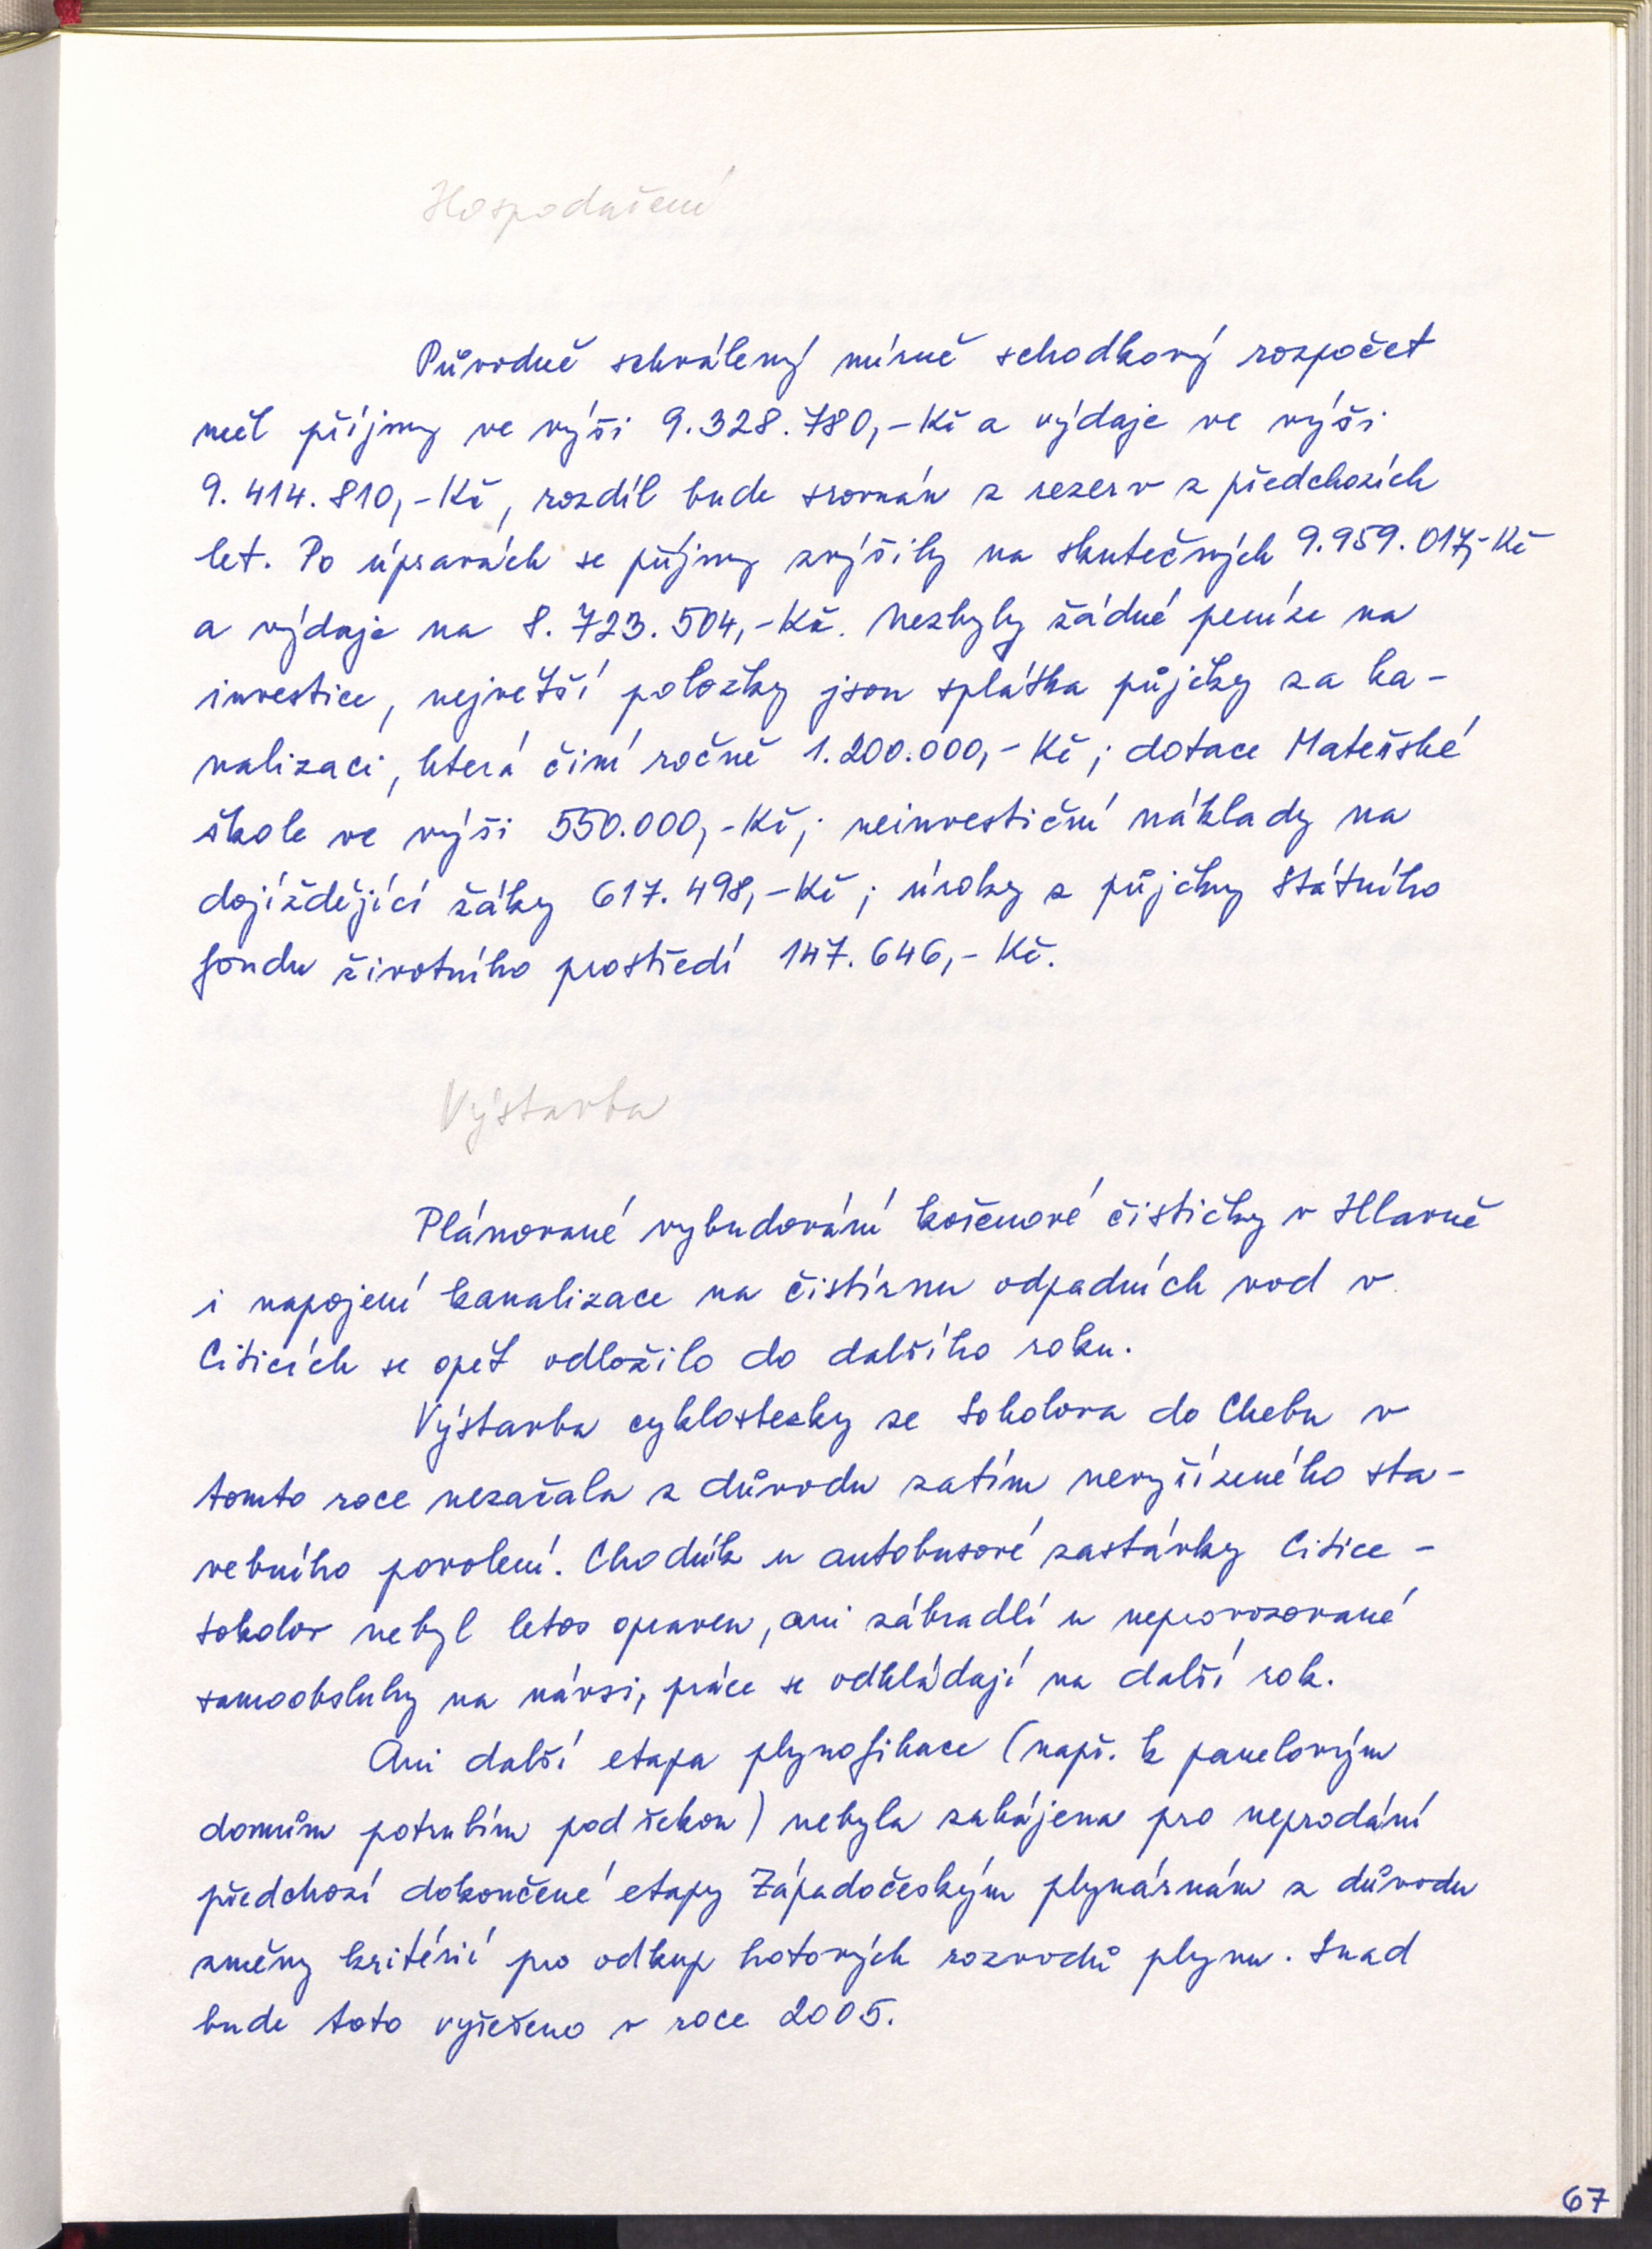 Hospodaření
Původně schválený mírně schodkový rozpočet
měl příjmy ve výši 9.328.780,-Kč a výdaje ve výši
9.414.810,-Kč, rozdíl bude srovnán z rezerv z předchozích
let. Po úpravách se příjmy zvýšily na skutečných 9.959.017,-Kč
a výdaje na 8.723.504,-Kč. Nezbyly žádné peníze na
investice, největší položky jsou splátka půjčky za ka-
nalizaci, která činí ročně 1.200.000,- Kč; dotace Mateřské
škole ve výši 550.000,-Kč; neinvestiční náklady na
dojíždějící žáky 617.498,-Kč; úroky z půjčky Státního
fondu životního prostředí 147.646,- Kč.
Výstavba
Plánované vybudování kořenové čističky v Hlavně
i napojení kanalizace na čistírnu odpadních vod v
Citicích se opět odložilo do dalšího roku.
Výstavba cyklostezky ze Sokolova do Chebu v
tomto roce nezačala z důvodu zatím nevyřízeného sta-
vebního povolení. Chodník u autobusové zastávky Citice -
Sokolov nebyl letos opraven, ani zábradlí u neprovozované
samoobsluhy na návsi, práce se odkládají na další rok.
Ani další etapa plynofikace (např. k panelovým
domům potrubím pod řekou) nebyla zahájena pro neprodání
předchozí dokončené etapy Západočeským plynárnám z důvodu
změny kritérií pro odkup hotových rozvodů plynu. Snad
bude toto vyřešeno v roce 2005.
67